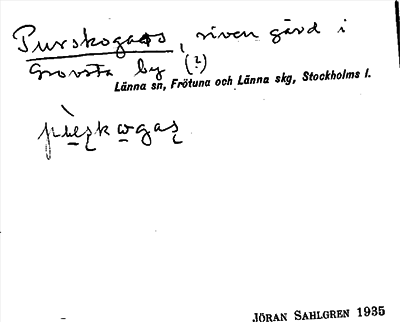 Purskogars, riven gård i
Grovsta by (?)
Länna sn, Frötuna och Länna skg, Stockholms l.
JÖRAN SAHLGREN 1935